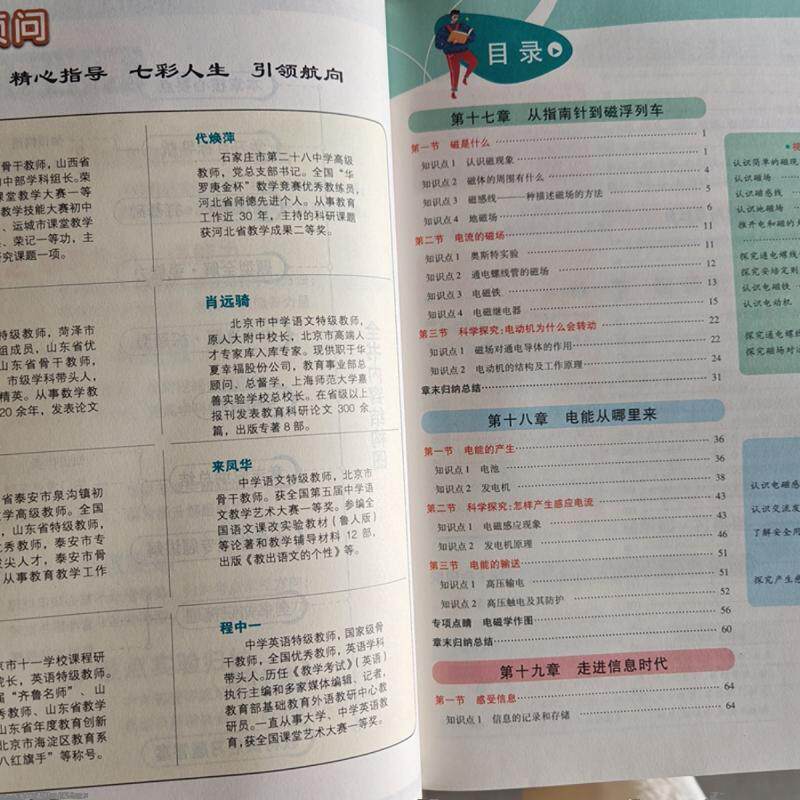 顾问
精心指导 七彩人生 引领航向
骨干教师，山西省
初中部学科组长。荣
课堂教学大赛一等
教学技能大赛初中
、运城市课堂教学
、荣记一等功，主
研究课题一项。
代焕萍
石家庄市第二十八中学高级
教师，党总支部书记。全国“华
罗庚金杯”数学竞赛优秀教练员，
河北省师德先进个人。从事教育
工作近 30 年，主持的科研课题
获河北省教学成果二等奖。
特级教师，菏泽市
组成员，山东省优
山东省骨干教师，
市级学科带头人，
精英。从事数学教
20 余年，发表论文
肖远骑
北京市中学语文特级教师，
原人大附中校长，北京市高端人
才专家库入库专家。现供职于华
夏幸福股份公司，教育事业部总
顾问、总督学，上海师范大学嘉
善实验学校总校长。在省级以上
报刊发表教育科研论文 300 余
篇，出版专著 8 部。
省泰安市泉沟镇初
学高级教师。全国
，山东省特级教师，
优秀教师，泰安市专
拔尖人才，泰安市骨
从事教育教学工作
来凤华
中学语文特级教师，北京市
骨干教师。获全国第五届中学语
文教学艺术大赛一等奖。参编全
国语文课改实验教材（鲁人版）
等论著和教学辅导材料 12 部，
出版《教出语文的个性》等。
京市十一学校课程研
院长，英语特级教师。
届“齐鲁名师”、山
秀教师、山东省教学
山东省年度教育创新
北京市海淀区教育系
八红旗手”等称号。
程中一
中学英语特级教师，国家级骨
干教师，全国优秀教师，英语学科
带头人。历任《教学考试》（英语）
执行主编和多家媒体编辑、记者，
教育部基础教育外语教研中心教
研员。一直从事大学、中学英语教
育，获全国课堂艺术大赛一等奖。
目录
第十七章 从指南针到磁浮列车
第一节 磁是什么 1
知识点 1 认识磁现象 1
知识点 2 磁体的周围有什么 4
知识点 3 磁感线——一种描述磁场的方法 5
知识点 4 地磁场 6
第二节 电流的磁场 11
知识点 1 奥斯特实验 11
知识点 2 通电螺线管的磁场 12
知识点 3 电磁铁 13
知识点 4 电磁继电器 15
第三节 科学探究：电动机为什么会转动 22
知识点 1 磁场对通电导体的作用 22
知识点 2 电动机的结构及工作原理 24
章末归纳总结 31
第十八章 电能从哪里来
第一节 电能的产生 36
知识点 1 电池 36
知识点 2 发电机 38
第二节 科学探究：怎样产生感应电流 43
知识点 1 电磁感应现象 43
知识点 2 发电机原理 46
第三节 电能的输送 51
知识点 1 高压输电 51
知识点 2 高压触电及其防护 52
专项点睛 电磁学作图 56
章末归纳总结 60
第十九章 走进信息时代
第一节 感受信息 64
知识点 1 信息的记录和存储 64
认识简单的磁现
认识磁场
认识磁感线
认识地磁场
推开电和磁的大
探究通电螺线管
探究安培定则
认识电磁铁
认识电动机
探究通电导
探究磁场对
认识电磁感
认识交流发
了解安全用
探究产生感